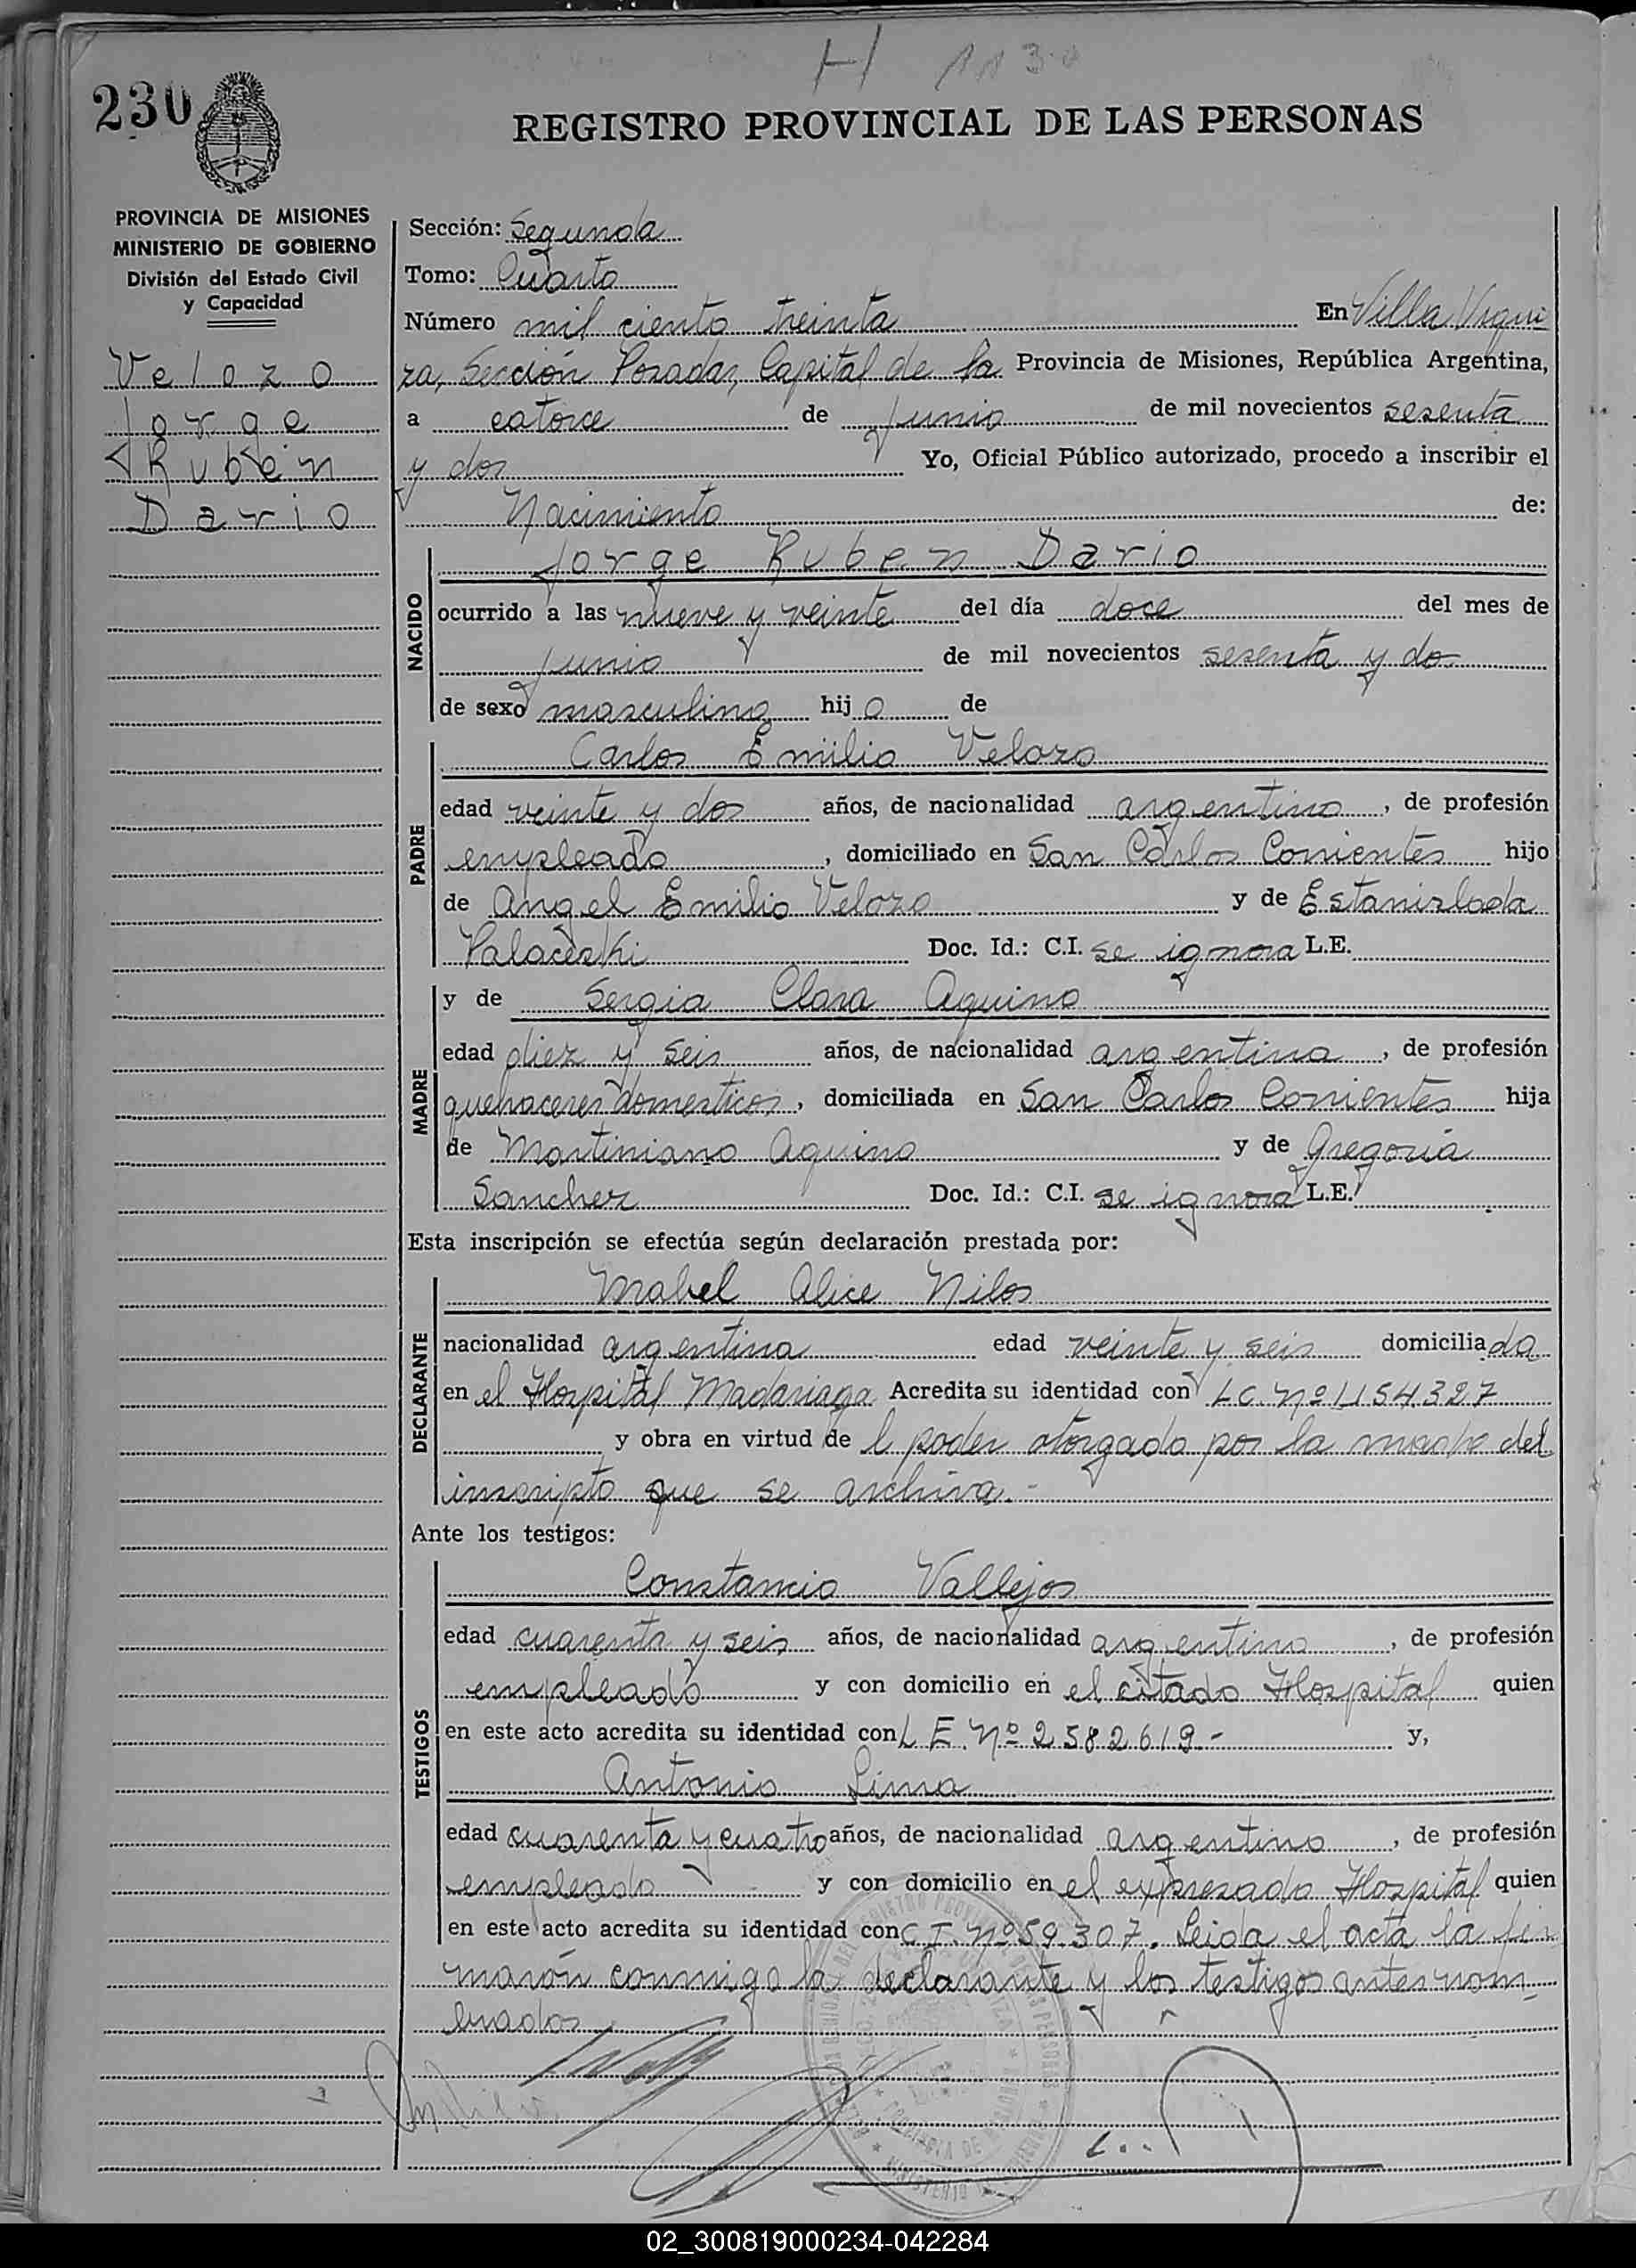 H 1130
230
REGISTRO PROVINCIAL DE LAS PERSONAS
PROVINCIA DE MISIONES
MINISTERIO DE GOBIERNO
División del Estado Civil
y Capacidad
Velozo
Jorge
Rubén
Dario
Sección: Segunda
Tomo: Cuarto
Número mil ciento treinta En Villa Urqui
za, Sección Posadas, Capital de la Provincia de Misiones, República Argentina,
a catorce de junio de mil novecientos sesenta
y dos Yo, Oficial Público autorizado, procedo a inscribir el
Nacimiento de:
NACIDO
Jorge Ruben Dario
ocurrido a las nueve y veinte del día doce del mes de
junio de mil novecientos sesenta y dos
de sexo masculino hijo de
PADRE
Carlos Emilio Velozo
edad veinte y dos años, de nacionalidad argentino, de profesión
empleado, domiciliado en San Carlos Corrientes hijo
de Angel Emilio Velozo y de Estanislada
Palaceski Doc. Id.: C.I. se ignora L.E.
MADRE
y de Sergia Clara Aquino
edad diez y seis años, de nacionalidad argentina, de profesión
quehaceres domesticos, domiciliada en San Carlos Corrientes hija
de Martiniano Aquino y de Gregoria
Sanchez Doc. Id.: C.I. se ignora L.E.
Esta inscripción se efectúa según declaración prestada por:
DECLARANTE
Mabel Alice Nilos
nacionalidad argentina edad veinte y seis domiciliada
en el Hospital Madariaga Acredita su identidad con L C. Nº 1.154.327
y obra en virtud de l poder otorgado por la madre del
inscripto que se archiva.-
Ante los testigos:
TESTIGOS
Constancio Vallejos
edad cuarenta y seis años, de nacionalidad argentino, de profesión
empleado y con domicilio en el citado Hospital quien
en este acto acredita su identidad con L E. Nº 2582619.- y,
Antonio Lima
edad cuarenta y cuatro años, de nacionalidad argentino, de profesión
empleado y con domicilio en el expresado Hospital quien
en este acto acredita su identidad con C I. Nº 59.307. Leida el acta la fir
marón conmigo la declarante y los testigos antesnom
brados
02_300819000234-042284